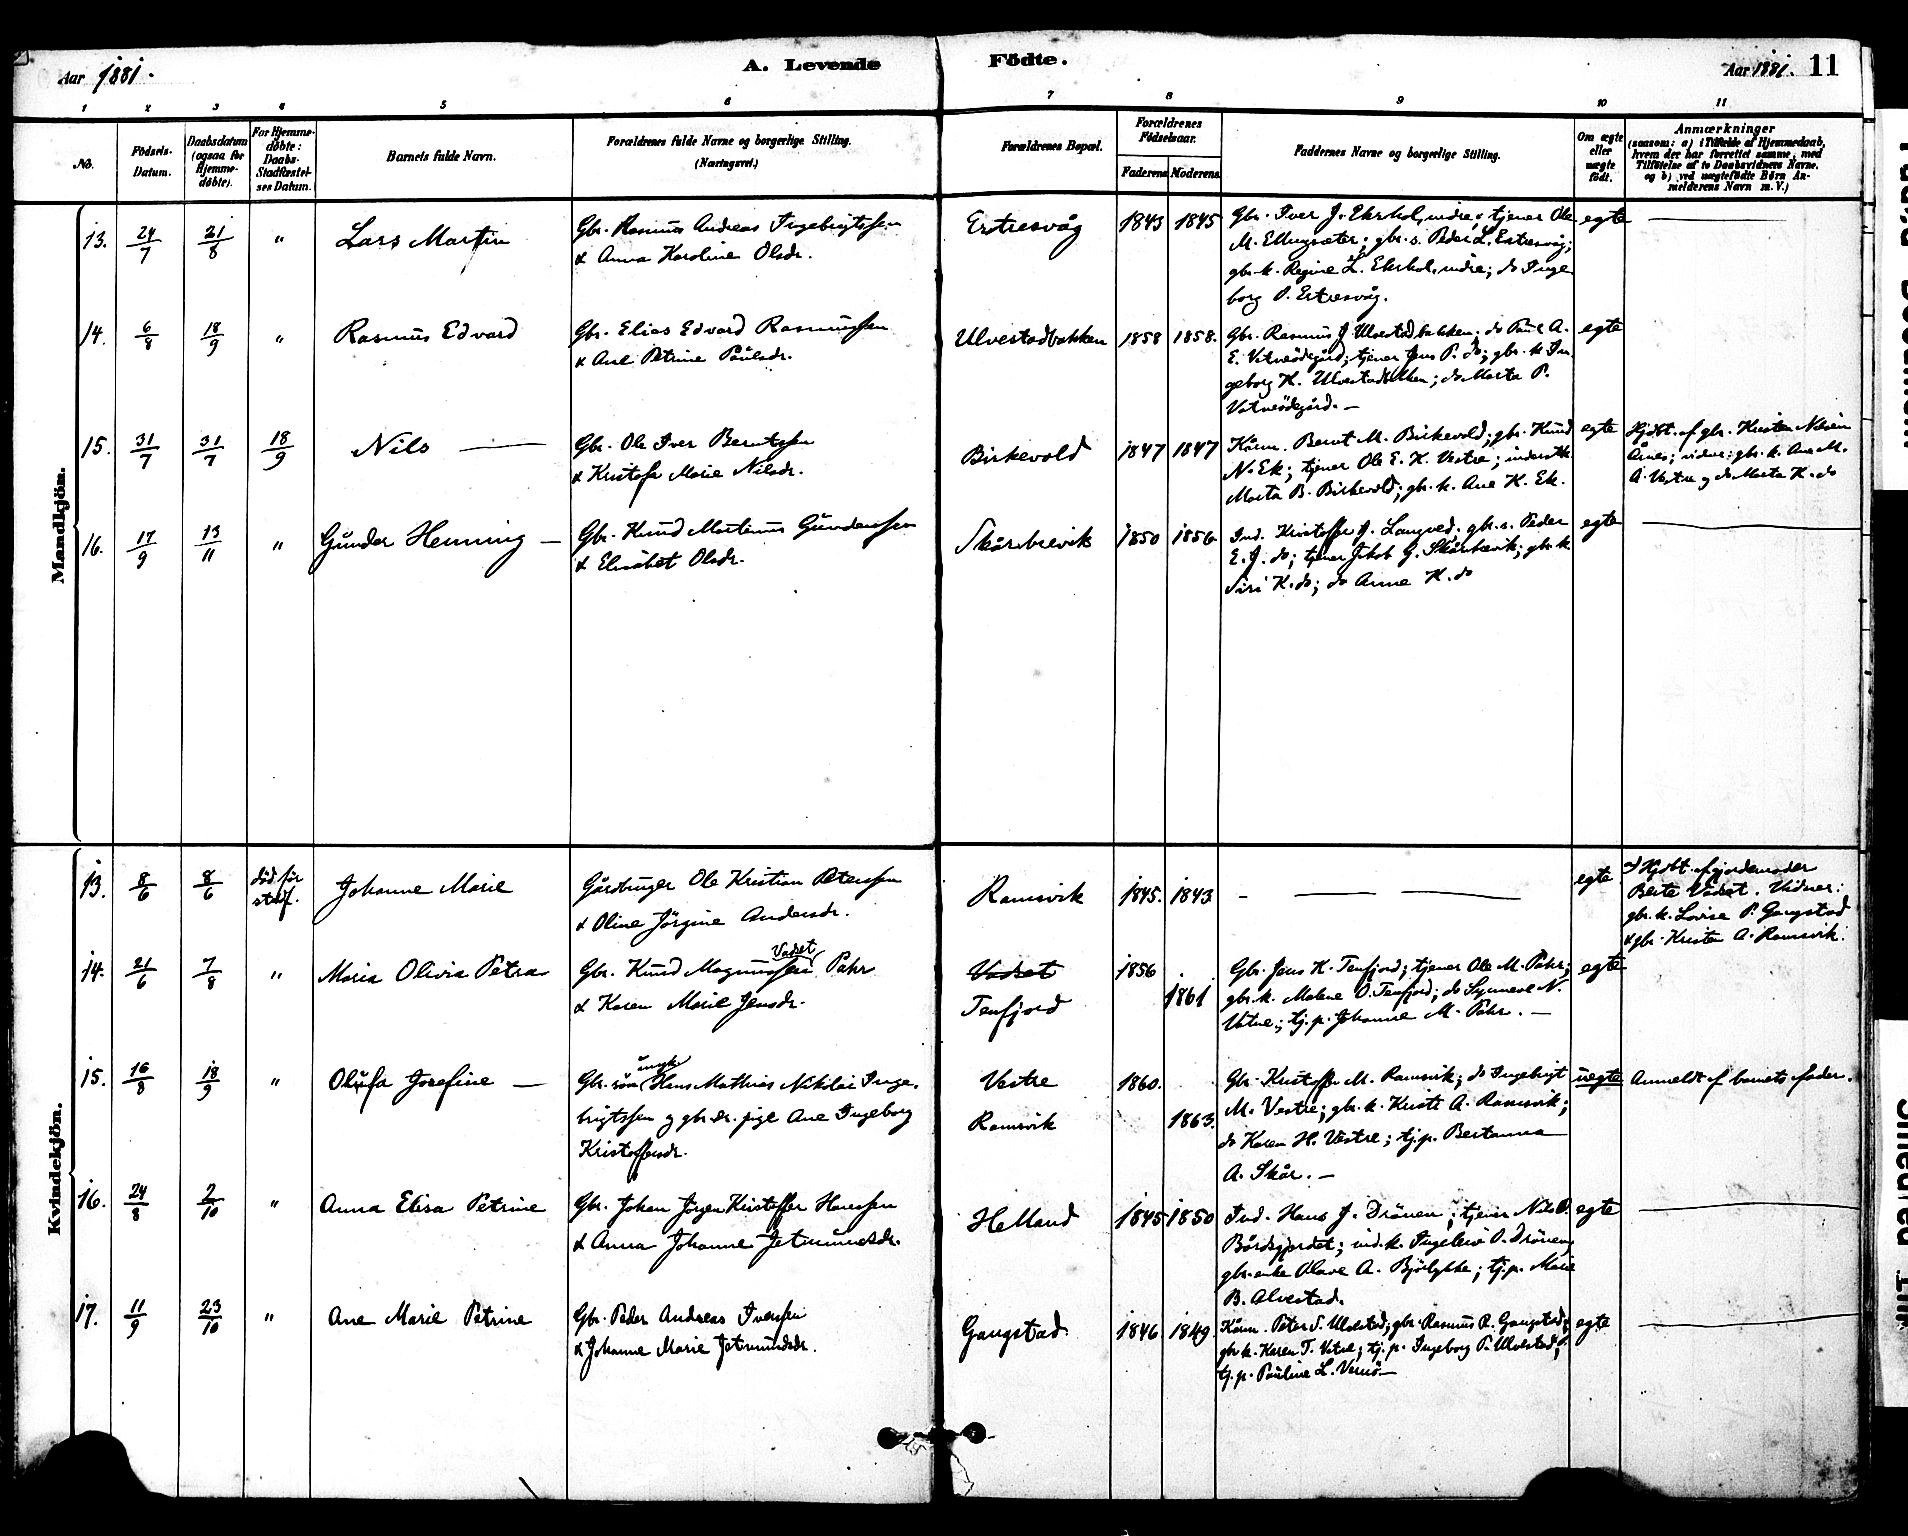 Aar 1881.
A. Levende Födte.
Aar 1881. 11
1 2 3 4 5 6 7 8 9 10 11
No.
Födsels-Datum.
Daabsdatum (ogsaa for Hjemmedöbte).
For Hjemmedöbte: Daabs-Stadfæstelses Datum.
Barnets fulde Navn.
Forældrenes fulde Navne og borgerlige Stilling. (Næringsvei.)
Forældrenes Bopæl.
Forældrenes Födselsaar.
Faderens Moderens
Faddernes Navne og borgerlige Stilling.
Om ægte eller uægte födt.
Anmærkninger
(saasom: a) i Tilfælde af Hjemmedaab,
hvem der har forrettet samme, med
Tilföielse af to Daabsvidners Navne.
og b) ved uægtefödte Börn An-
melderens Navn m. V.)
Mandkjön.
13. 24/7 21/8 " Lars Martin
Gbr. Rasmus Andreas Ingebrigtssen
& Anna Karoline Olsdr.
Ertresvåg 1843 1845
Gbr. Iver J. Ekrhol, indre; tjener Ole
M. Ellingsæter; gbr. s. Peder L. Ertresvåg;
gbr. k. Regine L. Ekrhol, indre; do Inge
borg P. Ertresvåg.
egte
14. 6/8 18/9 " Rasmus Edvard
Gbr. Elias Edvard Rasmussen
& Ane Petrine Paulsdr.
Ulvestadbakken 1858 1858.
Gbr. Rasmus J. Ulvestadbakken. do Paul A.
E. Vatneödegård; tjener Jens P. do; gbr. k. In
geborg K. Ulvestadbakken; do Marta P.
Vatneödegård. —
egte
15. 31/7 31/7 18/9 Nils —
Gbr. Ole Iver Berntssen
& Kristofa Marie Nilsdr.
Birkevold 1847 1847
Kårm. Bernt M. Birkevold; gbr. Knud
N. Ek; tjener Ole E. K. Vestre; inderstk.
Marta B. Birkevold; gbr. k. Ane K. Ek.
egte
Hjdbt. af gbr. Kristen
Årnes; vidner: gbr. k. Ane M.
A. Vestre og do Marta K. do
16. 17/9 13/11 " Gunder Henning —
Gbr. Knud Martinus Gunderssen
& Elisabet Olsdr.
Skårbrevik 1850 1856
Ind. Kristoffer J. Langved. gbr. s. Peder
E. J. do; tjener Jakob G. Skårbrevik; gbr. k.
Siri K. do; do Anne K. do
egte
Kvindekjön.
13. 8/6 8/6 död för stadf. Johanne Marie
Gårdbruger Ole Kristian Peterssen
& Oline Jörgine Andersdr.
Ramsvik 1845. 1843
egte
Hjdbt. af jordemoder
Berte Vadset. Vidner:
gbr. k. Lovise P. Gangstad
& gbr. Kristen A. Ramsvik.
14. 21/6 7/8 " Maria Olivia Petra
Vadset
Gbr. Knud Magnussen Pahr
& Karen Marie Jensdr.
Vadset
Tenfjord
1856 1861
Gbr. Jens K. Tenfjord; tjener Ole M. Pahr;
gbr. k. Malene O. Tenfjord; do Synneve N.
Vatne; tj. p. Johanne M. Pahr. —
egte
15. 16/8 18/9 " Olufa Josefine —
ungk.
Gbr. sön Hans Mathias Nikolai Inge-
brigtssen og gbr. dr. pige Ane Ingeborg
Kristoffersdr.
Vestre 1860.
Ramsvik 1863.
Gbr. Kristoffer M. Ramsvik; do Ingebrigt
M. Vestre; gbr. k. Kristi A. Ramsvik;
do Karen H. Vestre; tj. p. Bertanna
A. Skår. —
uegte
Anmeldt af barnets fader.
16. 24/8 2/10 " Anna Elisa Petrine
Gbr. Johan Jörgen Kristoffer Hanssen
& Anna Johanne Jetmundsdr.
Helland 1845 1850
Ind. Hans J. Drönen; tjener Nils P.
Bårdsgjerdet; ind. k. Ingeleiv O. Drönen;
gbr. enke Olave A. Björlykke; tj. p. Marie
B. Alvestad.
egte
17. 11/9 23/10 " Ane Marie Petrine
Gbr. Peder Andreas Iverssen
& Johanne Marie Jetmundsdr.
Gangstad 1846 1849.
Kårm. Peter S. Ulvestad; gbr. Rasmus R. Gangstad;
gbr. k. Karen T. Vatne; tj. p. Ingeborg P. Ulvestad;
tj. p. Pauline L. Vernö —
egte